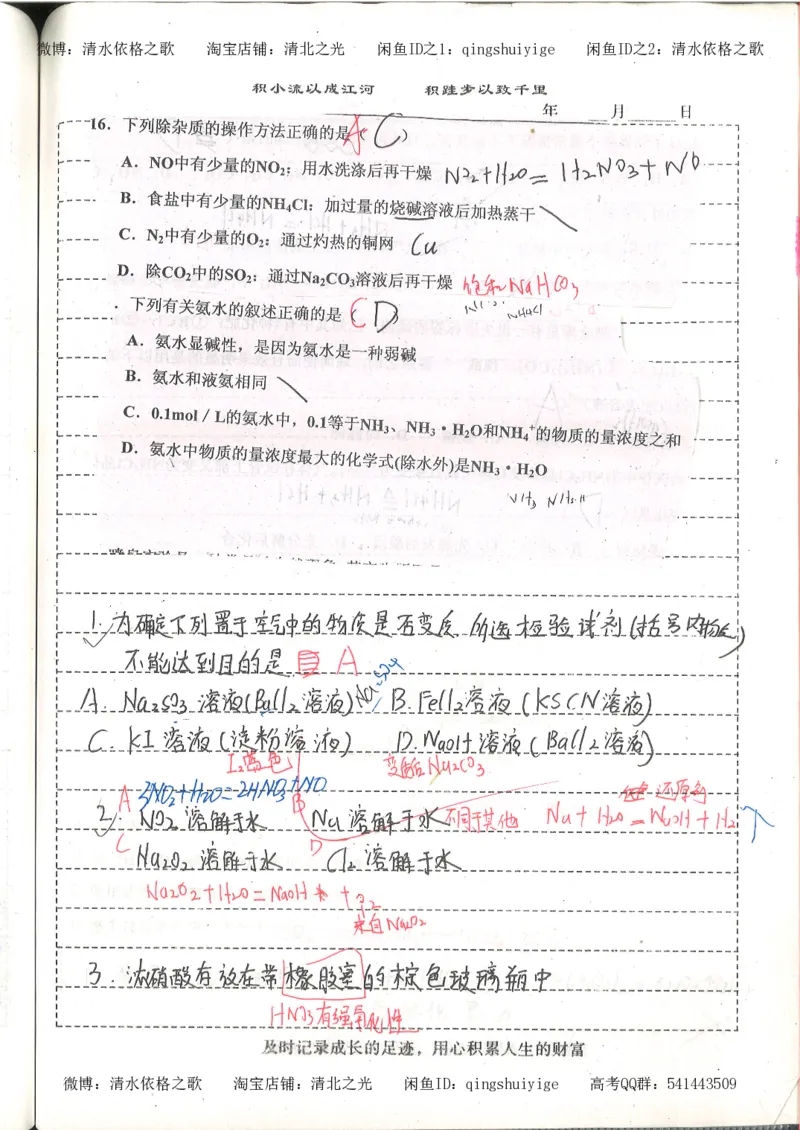 微博：清水依格之歌 淘宝店铺：清北之光 闲鱼ID之1：qingshuiyige 闲鱼ID之2：清水依格之歌
积小流以成江河 积跬步以致千里
年 月 日
16. 下列除杂质的操作方法正确的是 A (C)
A．NO中有少量的NO₂：用水洗涤后再干燥 NO₂+H₂O=H₂NO₃+NO
B．食盐中有少量的NH₄Cl：加过量的烧碱溶液后加热蒸干
C．N₂中有少量的O₂：通过灼热的铜网 Cu
D．除CO₂中的SO₂：通过Na₂CO₃溶液后再干燥 饱和NaHCO₃
．下列有关氨水的叙述正确的是 (C D NH₄Cl
A．氨水显碱性，是因为氨水是一种弱碱
B．氨水和液氨相同
C．0.1mol／L的氨水中，0.1等于NH₃、NH₃·H₂O和NH₄⁺的物质的量浓度之和
D．氨水中物质的量浓度最大的化学式(除水外)是NH₃·H₂O
1. 为确定下列置于空气中的物质是否变质，所选检验试剂(括号内物质)
不能达到目的是 A
A. Na₂SO₃溶液(BaCl₂溶液) Na₂SO₄ B. FeCl₂溶液(KSCN溶液)
C. KI溶液(淀粉溶液) D. NaOH溶液(BaCl₂溶液)
I₂蓝色 变质后Na₂CO₃
3NO₂+H₂O=2HNO₃+NO
2. A NO₂溶解于水 B Na溶解于水 不同于其他 Na+H₂O=NaOH+H₂↑
还原剂
C Na₂O₂溶解于水 D Cl₂溶解于水
Na₂O₂+H₂O=NaOH+O₂
来自Na₂O₂
3. 浓硝酸存放在带橡胶塞的棕色玻璃瓶中
HNO₃有强氧化性
及时记录成长的足迹，用心积累人生的财富
微博：清水依格之歌 淘宝店铺：清北之光 闲鱼ID：qingshuiyige 高考QQ群：541443509